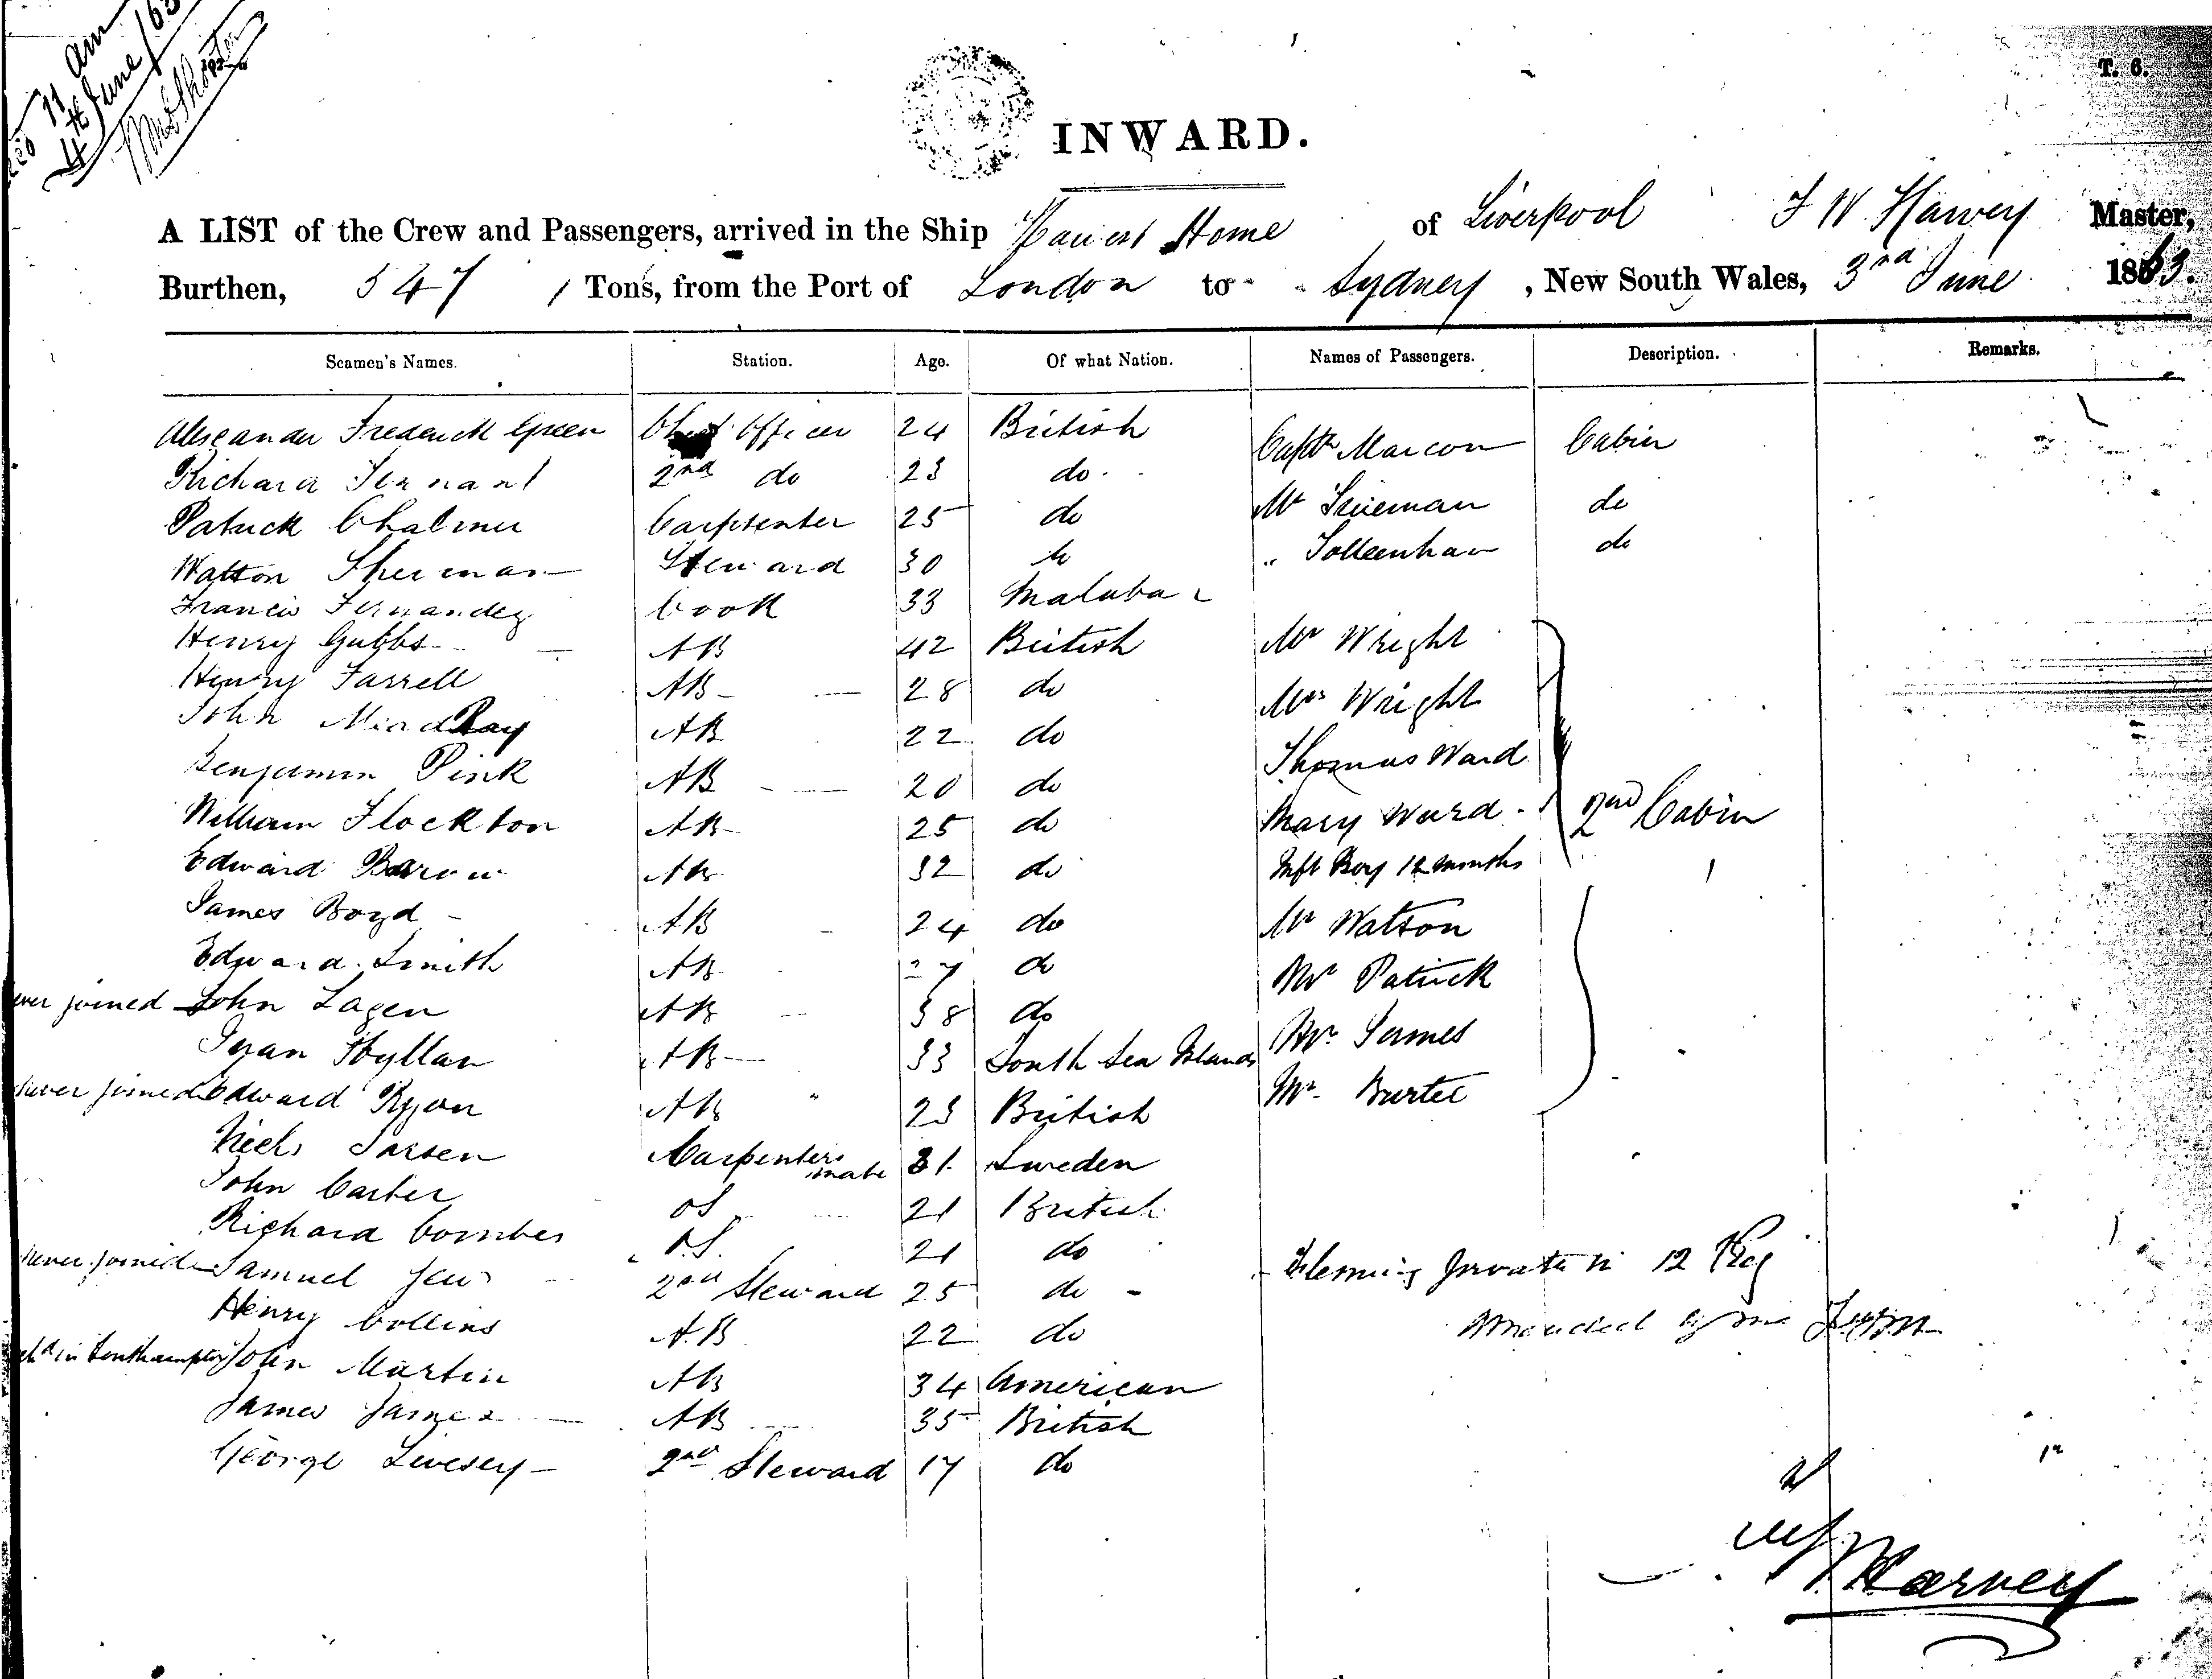 11 am
4th June/63
T. 6.
INWARD.
A LIST of the Crew and Passengers, arrived in the Ship Harvest Home of Liverpool F W Harvey Master,
Burthen, 547 Tons, from the Port of London to Sydney, New South Wales, 3rd June 1863.
Seamen's Names. Station. Age. Of what Nation. Names of Passengers. Description. Remarks.
Alexander Frederick Green Chief Officer 24 British Captn Marcon Cabin
Richard 2nd do 23 do
Patrick Chalmer Carpenter 25 do Mr Trueman do
Watson Sherman Steward 30 do " do
Francis Fernandez Cook 33 Malabar
Henry Gubbs AB 42 British Mr Wright
Henry Farrell AB 28 do Mrs Wright
John AB 22 do
Benjamin Pink AB 20 do Thomas Ward
William Flockton AB 25 do Mary Ward 2nd Cabin
Edward Barow AB 32 do Inft Boy 12 months
James Boyd AB 24 do Mr Watson
Edward Smith AB 27 do Mr Patrick
joined John Lagen AB 38 do Mr James
AB 33 South Sea Islands
never joined Edward Ryan AB 23 British Mr
Niels Larsen Carpenters mate 31 Sweden
John Carter OS 21 British
Richard Comber O.S. 21 do
never joined Samuel 2nd Steward 25 do Fleming private in 12 Reg
Henry Collins A.B 22 do
in Southampton John Martin AB 34 American
James James AB 35 British
George Livesey 2nd Steward 17 do
Harvey